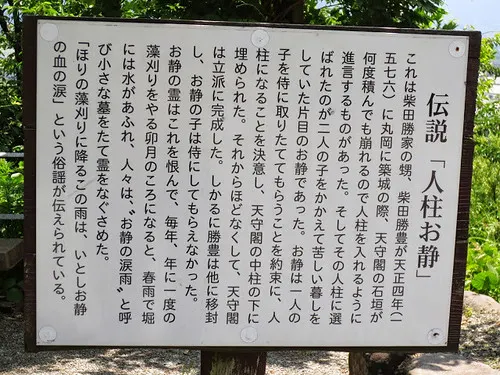 伝説「人柱お静」
これは柴田勝家の甥、柴田勝豊が天正四年(一
五七六)に丸岡に築城の際、天守閣の石垣が
何度積んでも崩れるので人柱を入れるように
進言するものがあった。そしてその人柱に選
ばれたのが二人の子をかかえて苦しい暮しを
していた片目のお静であった。お静は一人の
子を侍に取りたててもらうことを約束に、人
柱になることを決意し、天守閣の中柱の下に
埋められた。それからほどなくして、天守閣
は立派に完成した。しかるに勝豊は他に移封
し、お静の子は侍にしてもらえなかった。
お静の霊はこれを恨んで、毎年、年に一度の
藻刈りをやる卯月のころになると、春雨で堀
には水があふれ、人々は、〝お静の涙雨〟と呼
び小さな墓をたて霊をなぐさめた。
「ほりの藻刈りに降るこの雨は、いとしお静
の血の涙」という俗謡が伝えられている。